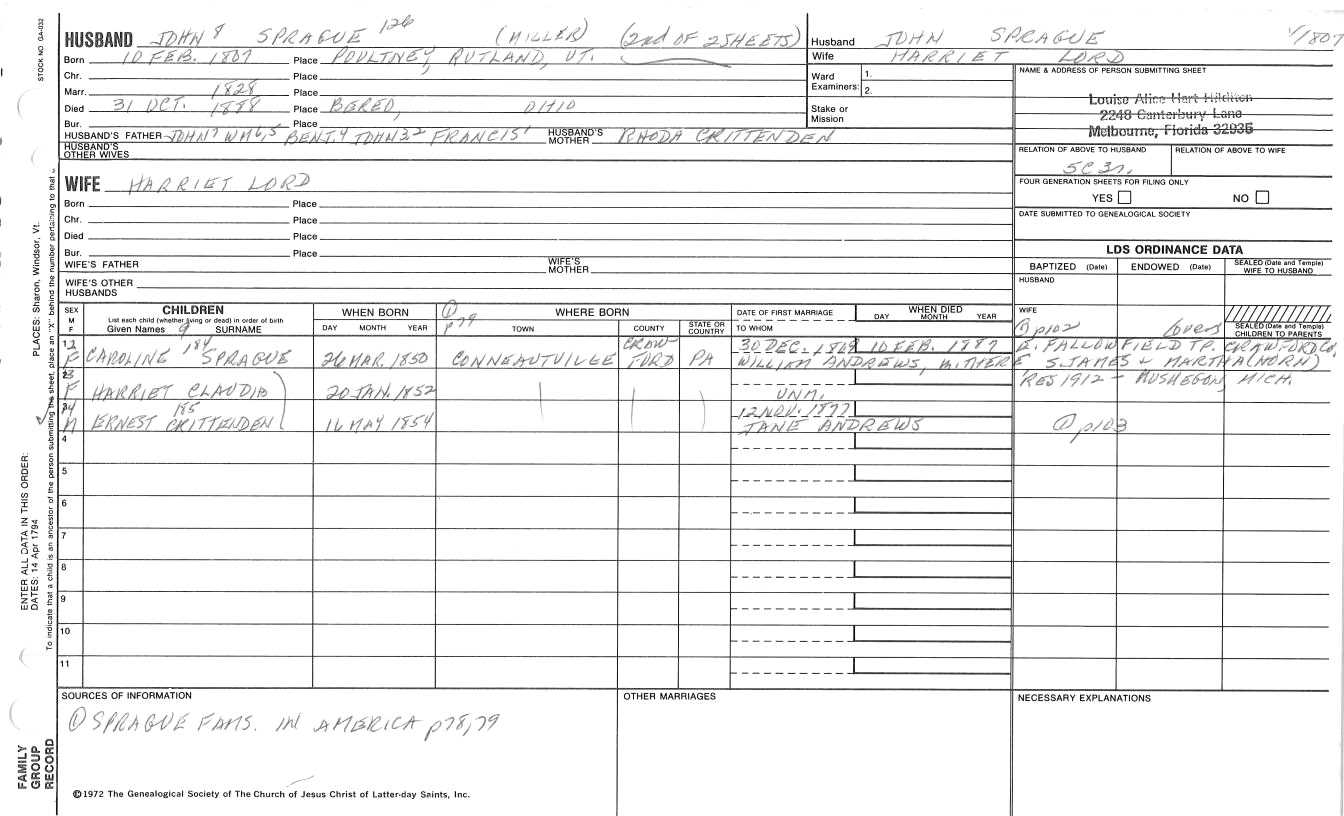 STOCK NO. GA-032
HUSBAND JOHN 8 SPRAGUE 126 (MILLER) (2nd OF 2 SHEETS)
Born 10 FEB. 1807 Place POULTNEY, RUTLAND, VT.
Chr. Place
Marr. 1828 Place
Died 31 OCT. 1888 Place BEREA, OHIO
Bur. Place
HUSBAND'S FATHER JOHN 7 WM 6,5 BENJ. 4 JOHN 3,2 FRANCIS 1 HUSBAND'S MOTHER RHODA CRITTENDEN
HUSBAND'S OTHER WIVES
Husband JOHN SPRAGUE 1/1807
Wife HARRIET LORD
Ward Examiners: 1.
2.
Stake or Mission
NAME & ADDRESS OF PERSON SUBMITTING SHEET
Louise Alice Hart
2248 Canterbury Lane
Melbourne, Florida 32935
RELATION OF ABOVE TO HUSBAND RELATION OF ABOVE TO WIFE
5C3r.
FOUR GENERATION SHEETS FOR FILING ONLY
YES NO
DATE SUBMITTED TO GENEALOGICAL SOCIETY
WIFE HARRIET LORD
Born Place
Chr. Place
Died Place
Bur. Place
WIFE'S FATHER WIFE'S MOTHER
WIFE'S OTHER HUSBANDS
LDS ORDINANCE DATA
BAPTIZED (Date) ENDOWED (Date) SEALED (Date and Temple) WIFE TO HUSBAND
HUSBAND
WIFE
SEALED (Date and Temple) CHILDREN TO PARENTS
SEX M F
CHILDREN
List each child (whether living or dead) in order of birth
Given Names 9 SURNAME
WHEN BORN
DAY MONTH YEAR
① p79 WHERE BORN
TOWN COUNTY STATE OR COUNTRY
DATE OF FIRST MARRIAGE
TO WHOM
WHEN DIED
DAY MONTH YEAR
① p102 (over)
12 F CAROLINE 184 SPRAGUE 26 MAR. 1850 CONNEAUTVILLE CRAWFORD PA 30 DEC. 1869 10 FEB. 1887 E. FALLOWFIELD TP. CRAWFORD CO.
WILLIAM ANDREWS, S. JAMES & MARTHA (NORN)
23 F HARRIET CLAUDIA 20 JAN. 1852 UNM. RES 1912 - MUSKEGON, MICH.
34 M ERNEST CRITTENDEN 185 16 MAY 1854 12 NOV. 1877 JANE ANDREWS ① p103
4
5
6
7
8
9
10
11
SOURCES OF INFORMATION
① SPRAGUE FAMS. IN AMERICA p78,79
OTHER MARRIAGES
NECESSARY EXPLANATIONS
©1972 The Genealogical Society of The Church of Jesus Christ of Latter-day Saints, Inc.
FAMILY GROUP RECORD
ENTER ALL DATA IN THIS ORDER:
DATES: 14 Apr 1794
PLACES: Sharon, Windsor, Vt.
To indicate that a child is an ancestor of the person submitting the sheet, place an "X" behind the number pertaining to that